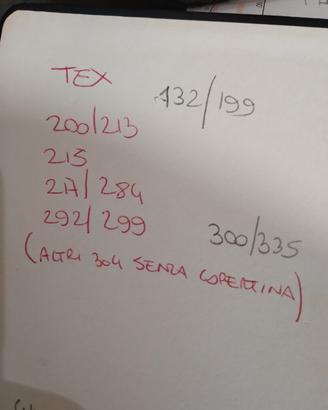 TEX
132/199
200/213
215
217/284
292/299
300/335
(ALTRI 304 SENZA COPERTINA)